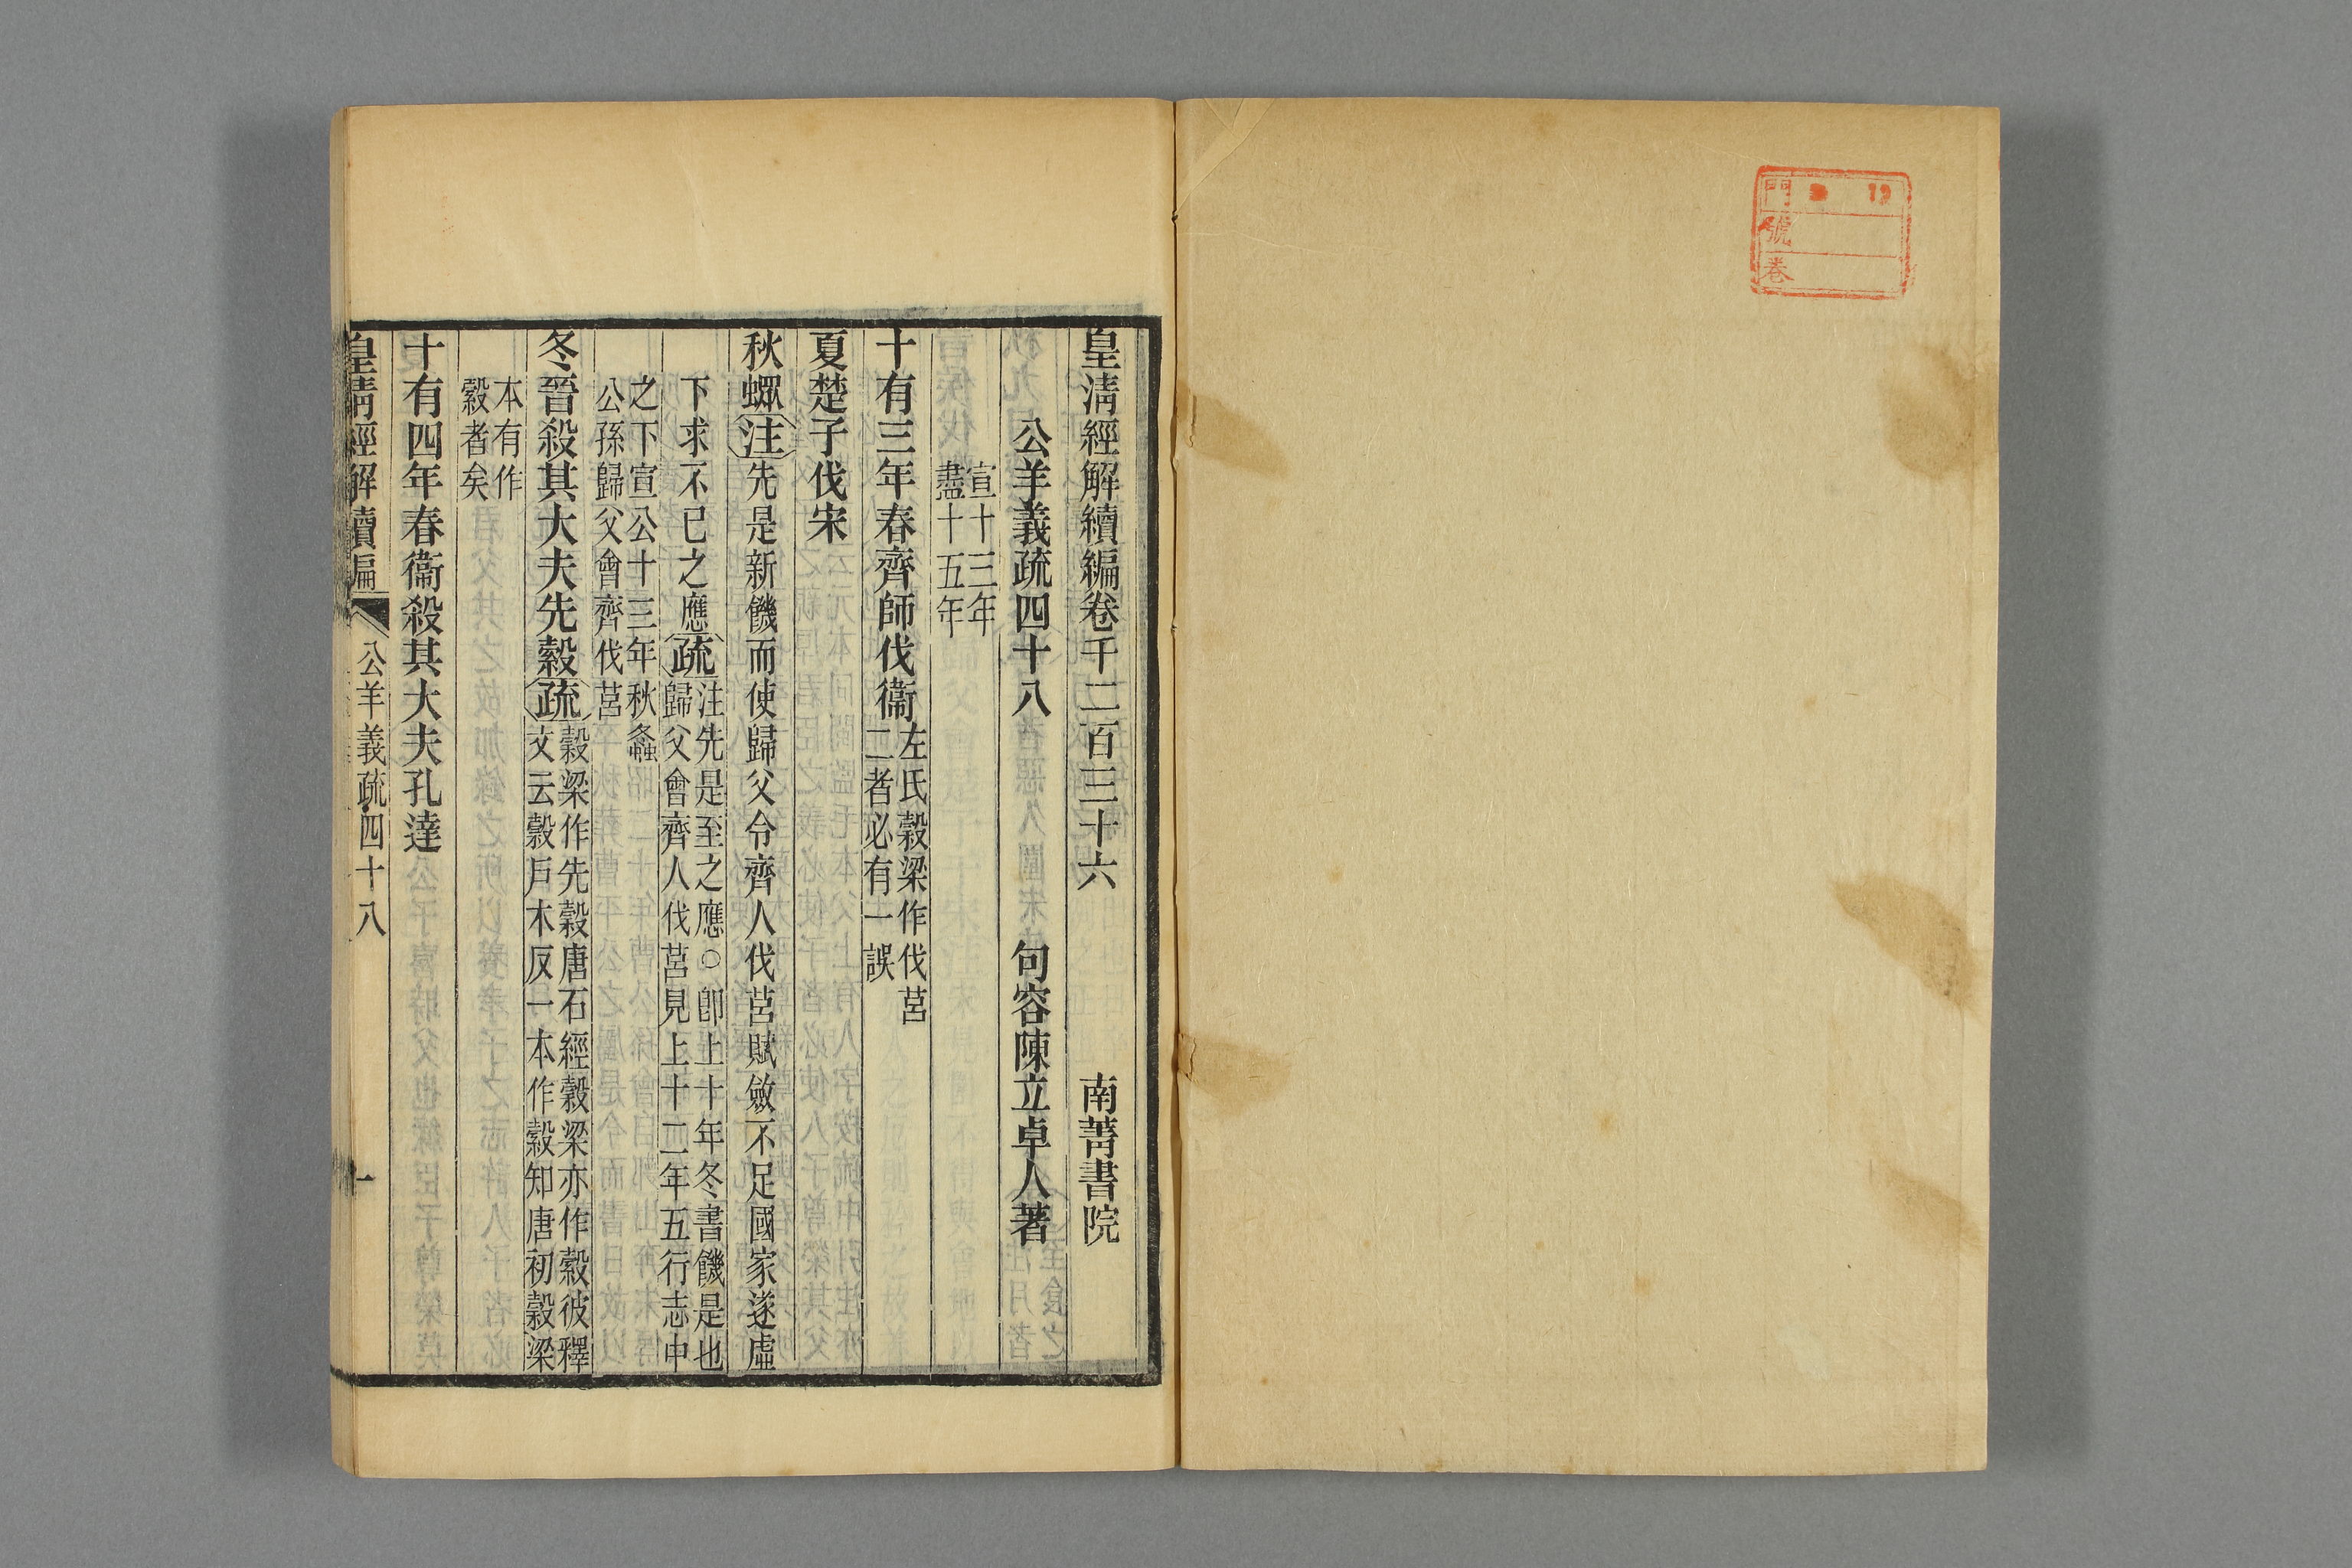 門
號
卷
皇淸經解續編卷千二百三十六 南菁書院
公羊義疏四十八 句容陳立卓人著
宣十三年
盡十五年
十有三年春齊師伐衞左氏穀梁作伐莒
二者必有一誤
夏楚子伐宋
秋螺注先是新饑而使歸父令齊人伐莒賦斂不足國家遂虛
下求不已之應疏注先是至之應○卽上十年冬書饑是也
歸父會齊人伐莒見上十二年五行志中
之下宣公十三年秋螽
公孫歸父會齊伐莒
冬晉殺其大夫先縠疏穀梁作先縠唐石經穀梁亦作縠彼釋
文云縠戶木反一本作穀知唐初穀梁
本有作
穀者矣
十有四年春衞殺其大夫孔達
皇淸經解續編 公羊義疏四十八 一